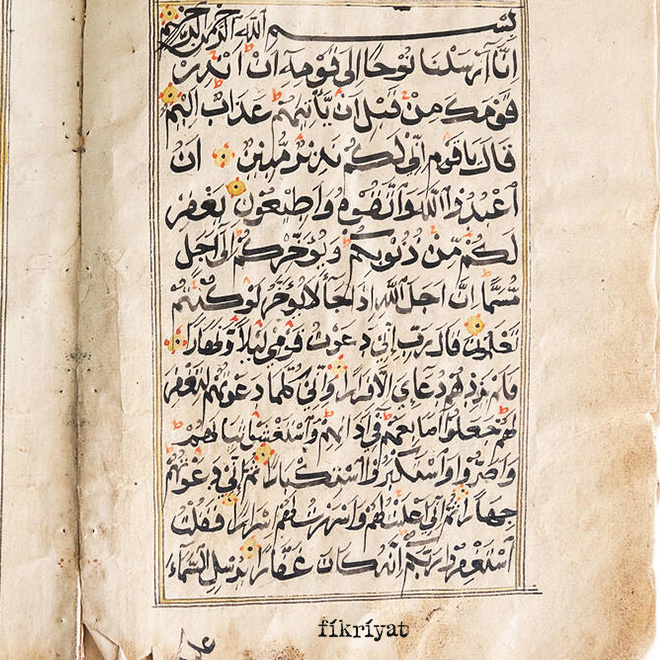 بِسْمِ اللَّهِ الرَّحْمَنِ الرَّحِيمِ
اِنَّا اَرْسَلْنَا نُوحًا اِلَى قَوْمِهِ اَنْ اَنْذِرْ
قَوْمَكَ مِنْ قَبْلِ اَنْ يَاْتِيَهُمْ عَذَابٌ اَلِيمٌ
قَالَ يَا قَوْمِ اِنِّي لَكُمْ نَذِيرٌ مُّبِينٌ اَنِ
اعْبُدُوا اللَّهَ وَاتَّقُوهُ وَاَطِيعُونِ يَغْفِرْ
لَكُمْ مِّنْ ذُنُوبِكُمْ وَيُؤَخِّرْكُمْ اِلَى اَجَلٍ
مُّسَمًّا اِنَّ اَجَلَ اللَّهِ اِذَا جَاءَ لَا يُؤَخَّرُ لَوْ كُنْتُمْ
تَعْلَمُونَ قَالَ رَبِّ اِنِّي دَعَوْتُ قَوْمِي لَيْلًا وَنَهَارًا
فَلَمْ يَزِدْهُمْ دُعَاءِي اِلَّا فِرَارًا وَاِنِّي كُلَّمَا دَعَوْتُهُمْ لِتَغْفِرَ
لَهُمْ جَعَلُوا اَصَابِعَهُمْ فِي اٰذَانِهِمْ وَاسْتَغْشَوْا ثِيَابَهُمْ
وَاَصَرُّوا وَاسْتَكْبَرُوا اسْتِكْبَارًا ثُمَّ اِنِّي دَعَوْتُهُمْ
جِهَارًا ثُمَّ اِنِّي اَعْلَنْتُ لَهُمْ وَاَسْرَرْتُ لَهُمْ اِسْرَارًا فَقُلْتُ
اسْتَغْفِرُوا رَبَّكُمْ اِنَّهُ كَانَ غَفَّارًا يُرْسِلِ السَّمَاءَ
fikriyat